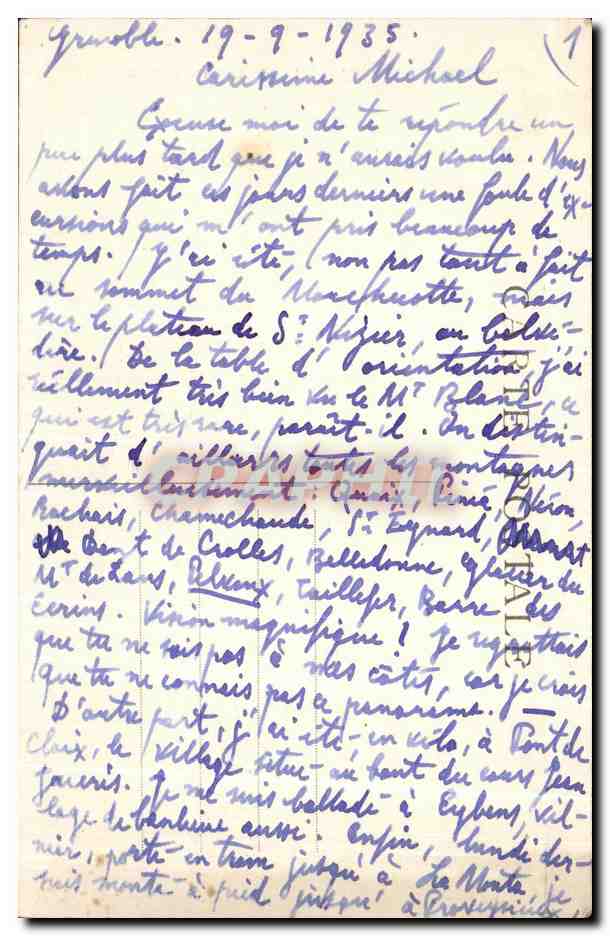 Grenoble. 19-9-1935.
1
Carissime Michael
Excuse moi de te répondre un
peu plus tard que je n'aurais voulu. Nous
avons fait ces jours derniers une foule d'ex-
cursions qui m'ont pris beaucoup de
temps. J'ai été, (non pas tout à fait
au sommet du Moucherotte, mais
sur le plateau de St Nizier, au belvé-
dère. De la table d'orientation j'ai
réellement très bien vu le Mt Blanc, ce
qui est très rare, paraît-il. On distin-
guait d'ailleurs toutes les montagnes
merveilleusement: Quaix, Néron,
Rachais, Chamechaude, St Eynard,
Dent de Crolles, Belledonne, glacier du
Mt de Lans, Pelvoux, Taillefer, Barre des
Ecrins. Vision magnifique! Je regrettais
que tu ne sois pas à mes côtés, car je crois
que tu ne connais pas ce panorama. —
D'autre part, j'ai été en vélo, à Pont de
Claix, le village situé au bout du cours Jean
Jaurès. Je me suis balladé à Eybens, vil-
lage de banlieue aussi. Enfin, lundi der-
nier, porté en tram jusqu'à La Monta je
suis monté à pied jusqu'à Proveysieux,
CARTE POSTALE
CPAPHIL